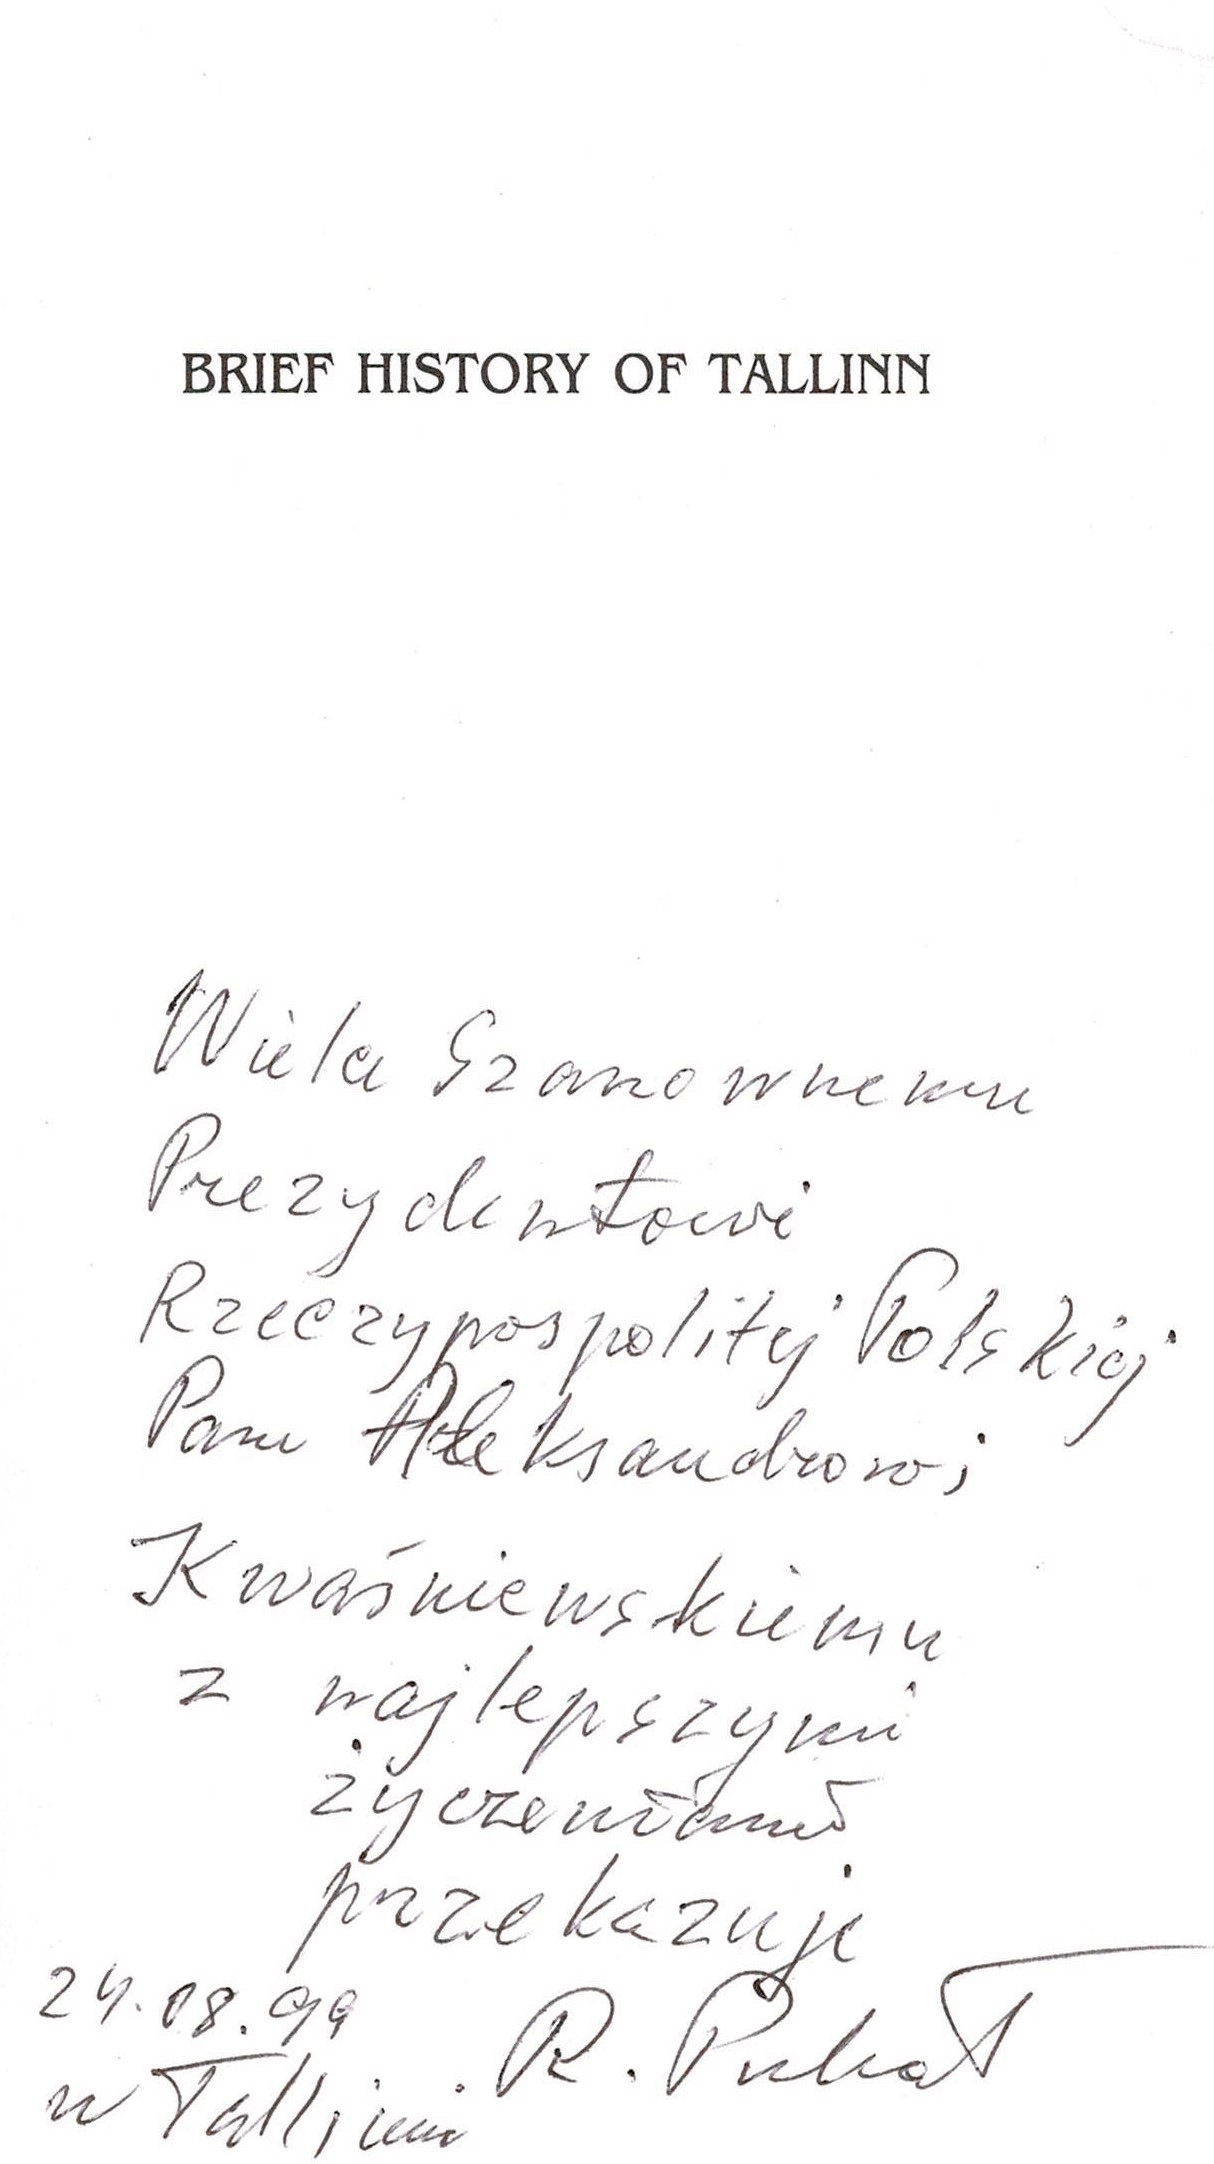 BRIEF HISTORY OF TALLINN
Wiela Szanownemu
Prezydentowi
Rzeczypospolitej Polskiej
Panu Aleksandrowi
Kwaśniewskiemu
z najlepszymi
życzeniami
przekazuje
24.08.99
R. Pullat
w Tallinni